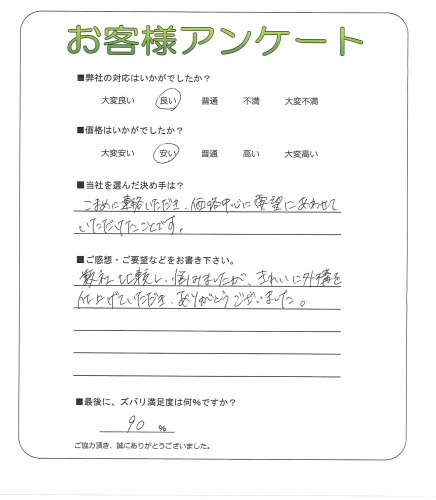 お客様アンケート
■弊社の対応はいかがでしたか？
大変良い 良い 普通 不満 大変不満
■価格はいかがでしたか？
大変安い 安い 普通 高い 大変高い
■当社を選んだ決め手は？
こまめに連絡いただき、価格中心に要望にあわせて
いただけたことです。
■ご感想・ご要望などをお書き下さい。
数社比較し、悩みましたが、きれいに外構を
仕上げていただき、ありがとうございました。
■最後に、ズバリ満足度は何％ですか？
90 ％
ご協力頂き、誠にありがとうございました。